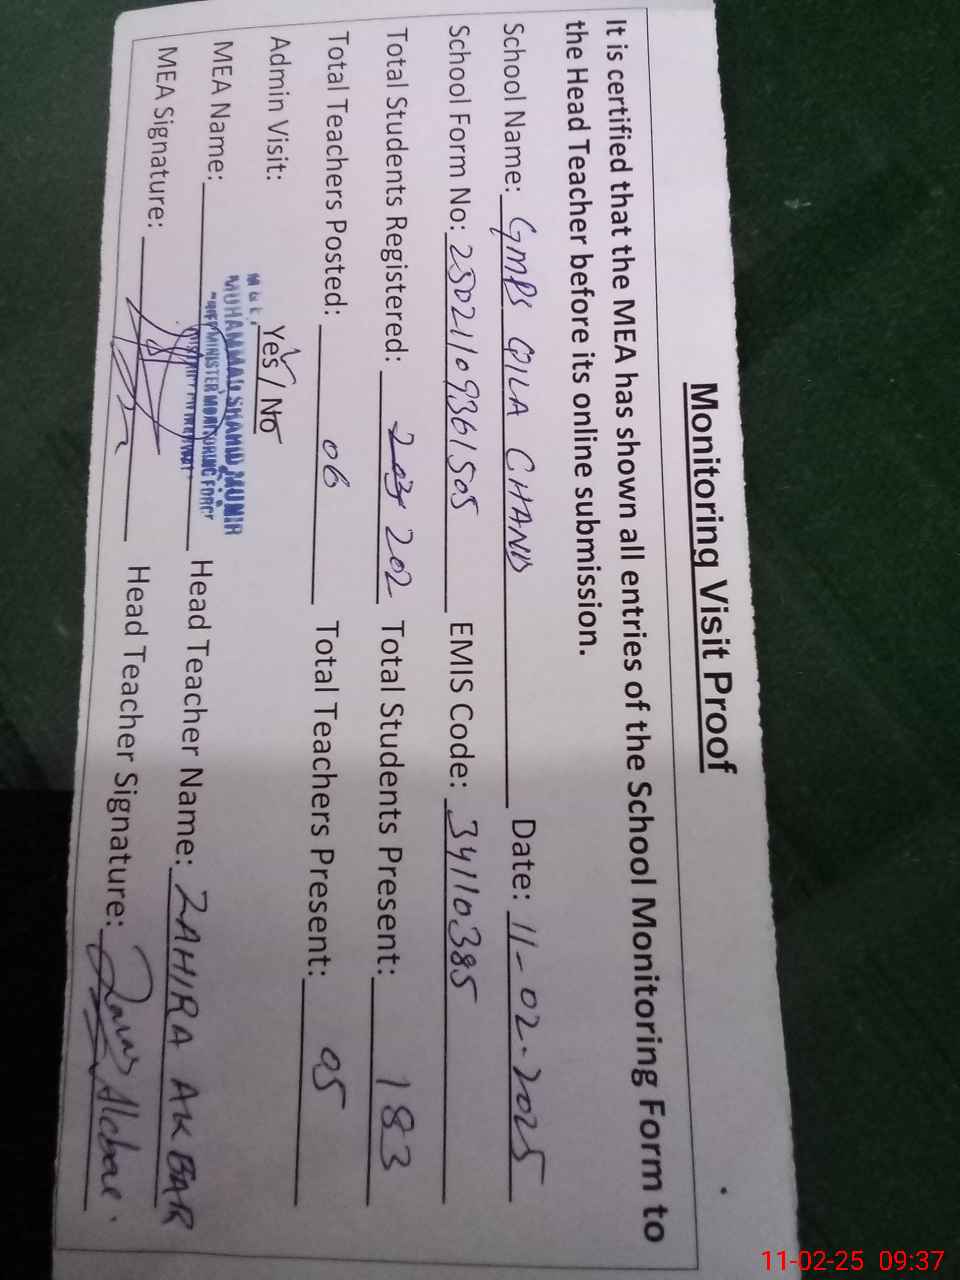 Monitoring Visit Proof
It is certified that the MEA has shown all entries of the School Monitoring Form to
the Head Teacher before its online submission.
School Name: GMPS QILA CHAND Date: 11-02-2025
School Form No: 25021109361505 EMIS Code: 34110385
Total Students Registered: 203 202 Total Students Present: 183
Total Teachers Posted: 06 Total Teachers Present: 05
Admin Visit: Yes / No
MEA Name: MUHAMMAD SHAHID MUNIR Head Teacher Name: ZAHIRA AKBAR
MINISTER MONITORING FORCE
MEA Signature: Head Teacher Signature: Akbar
11-02-25 09:37